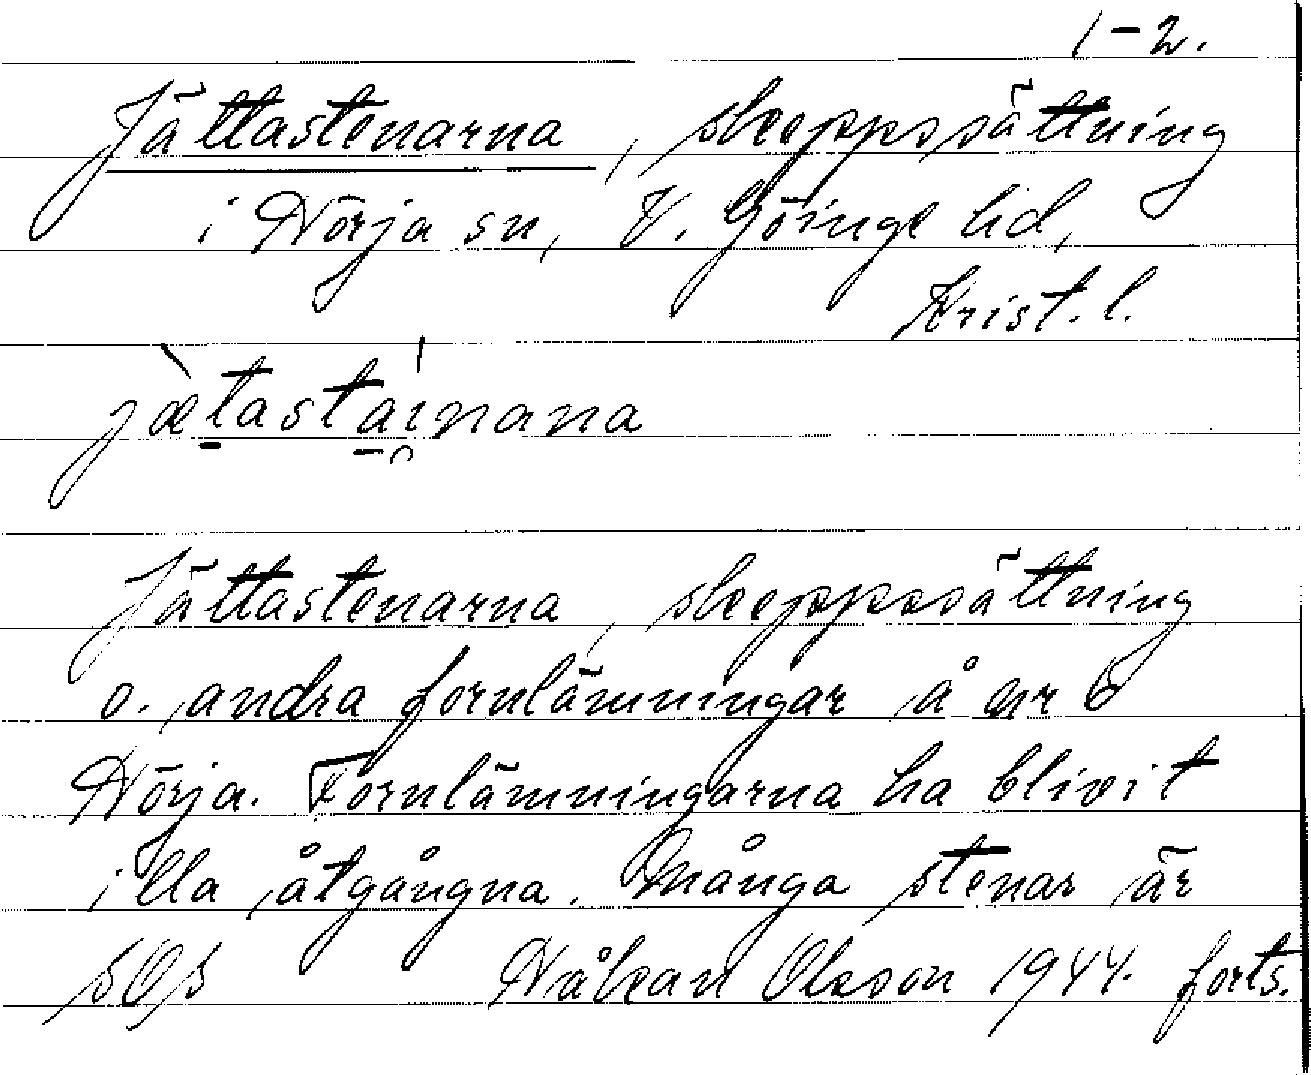 1-2.
Jättastenarna, skeppssättning
i Hörja sn, V. Göinge hd,
Krist. l.
jæ̀t̠asta̠í̯nana
Jättastenarna, skeppssättning
o. andra fornlämningar å nr 6
Hörja. Fornlämningarna ha blivit
illa åtgångna. Många stenar är
Håkan Olsson 1944. forts.